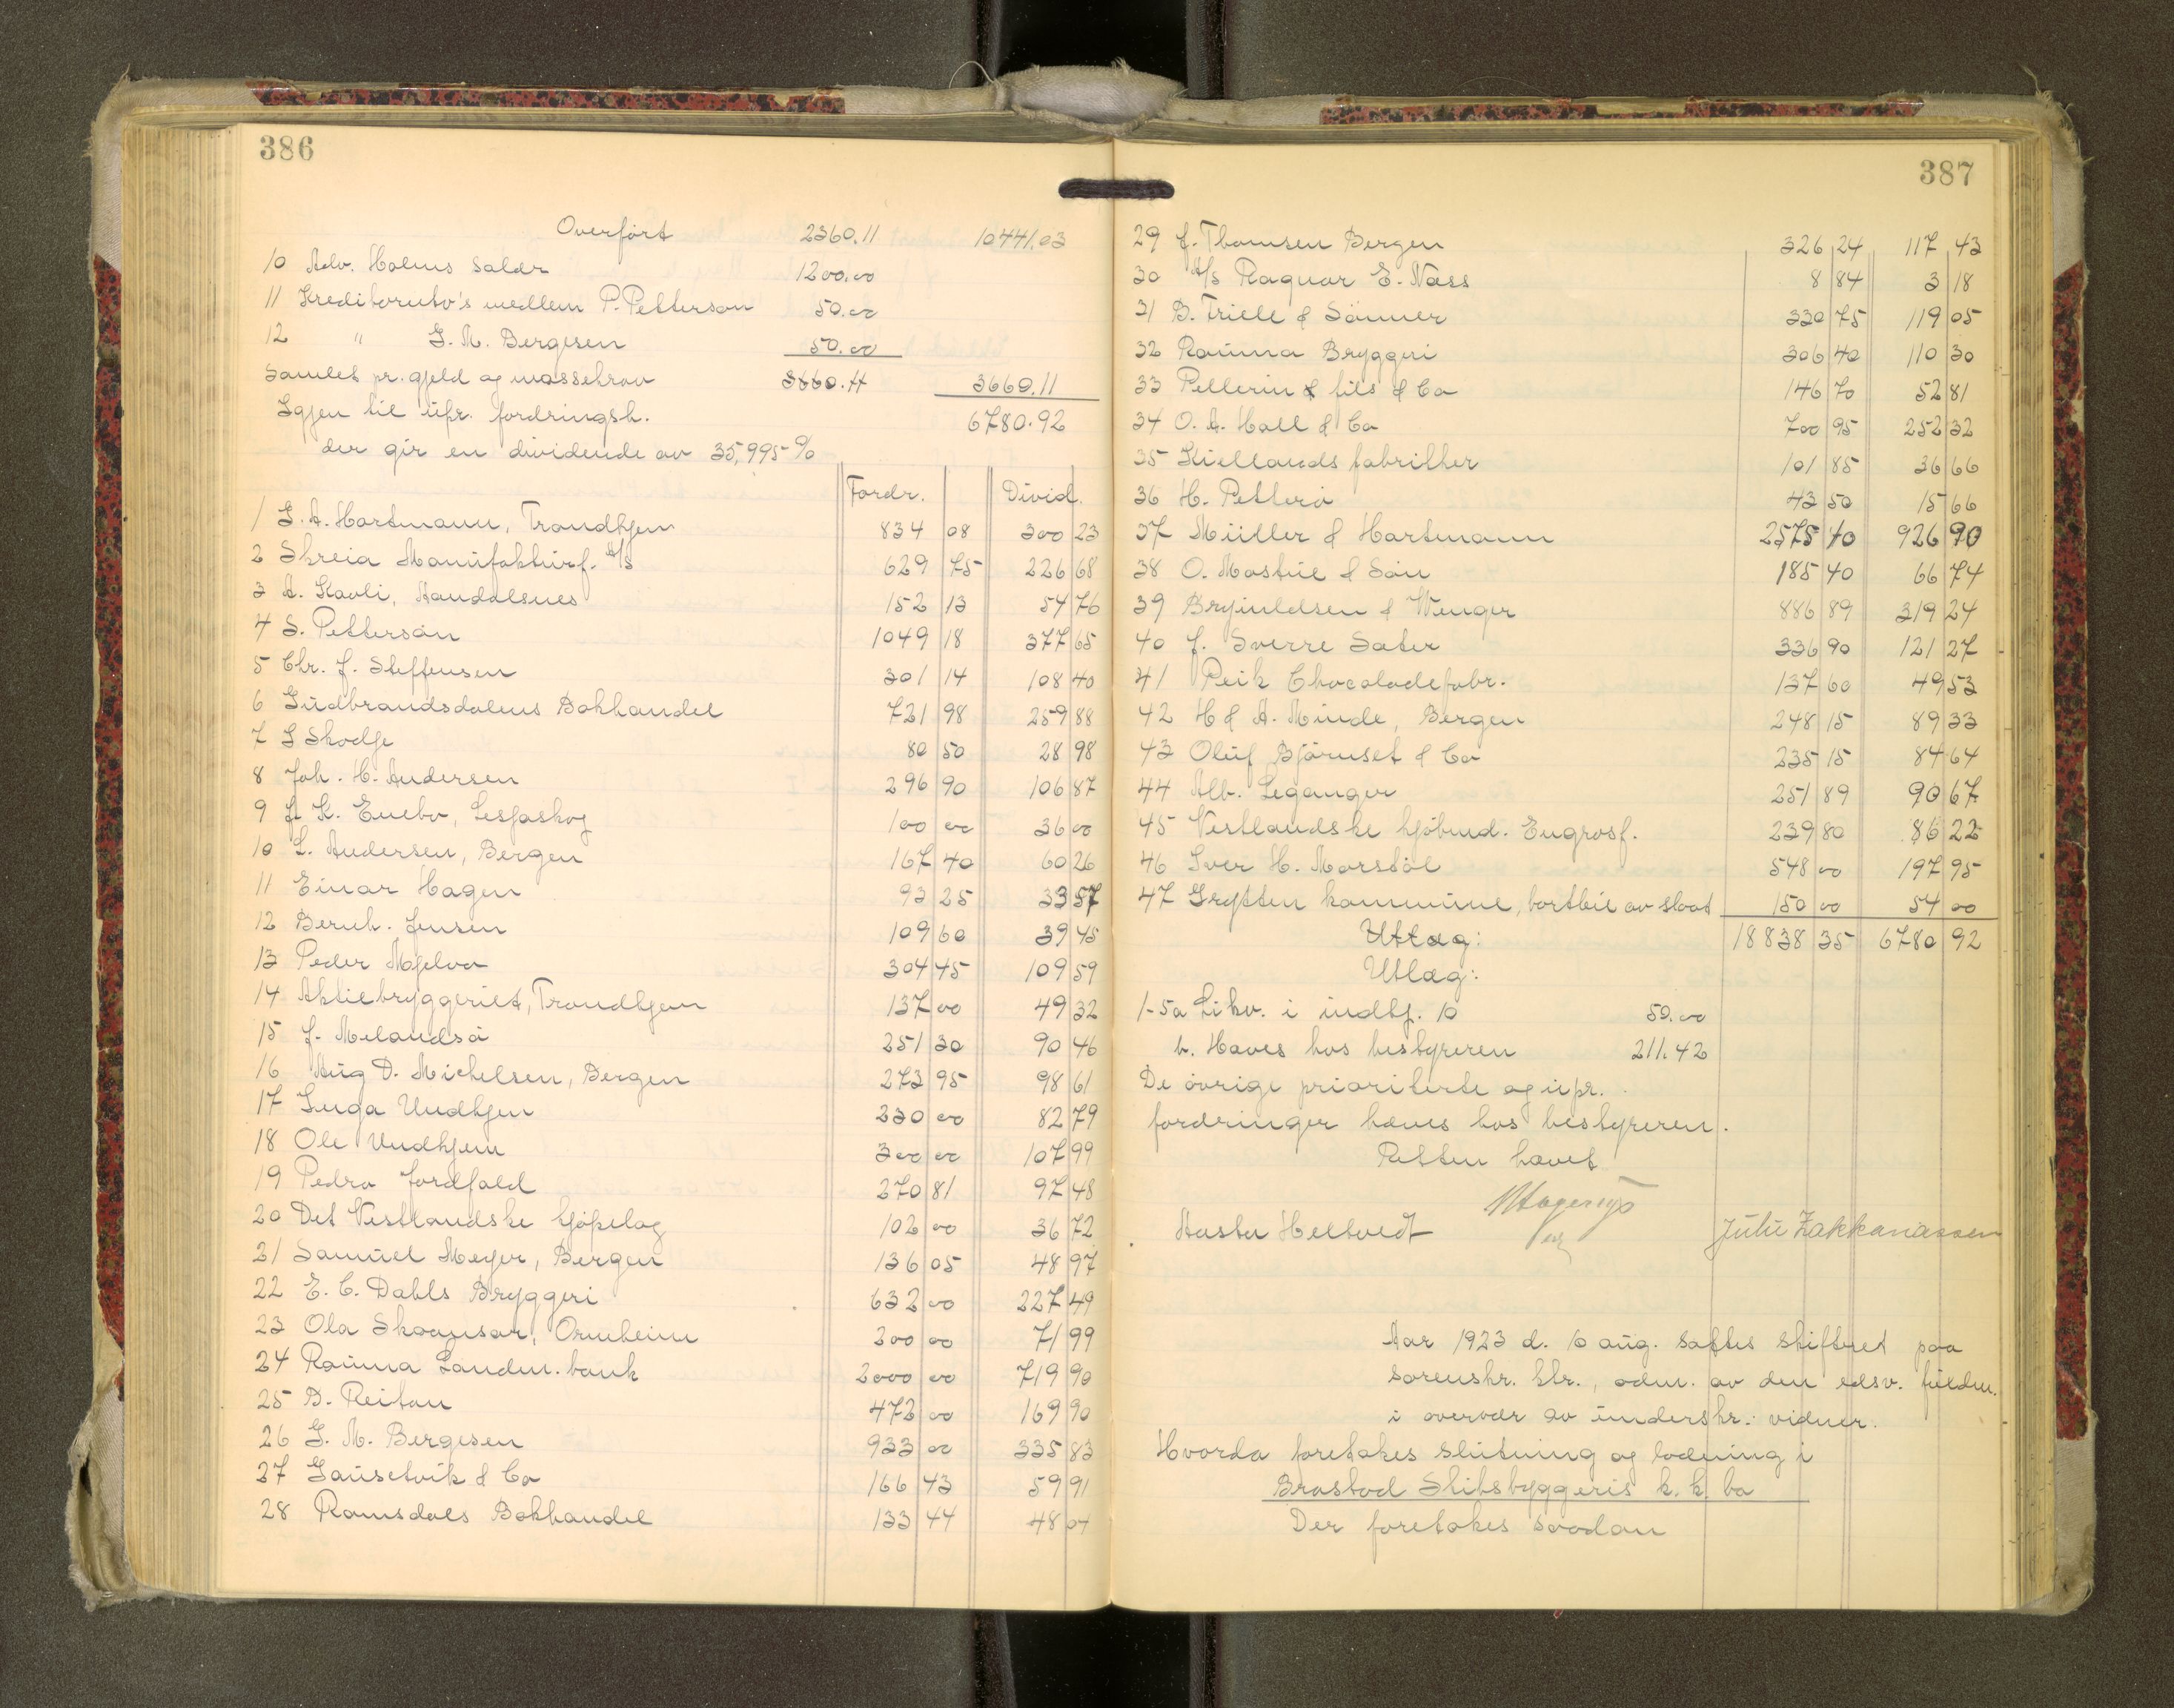 386
Overført 2360.11 10441.03
10 Adv. Holms Salär 1200.00
11 Kreditorutv's medlem P. Petterson 50.00
12 " G. M. Bergesen 50.00
Samlet pr. gjeld og massekrav 3660.11 3660.11
Igjen til upr. fordringsh. 6780.92
der gir en dividende av 35,995 %
Fordr. Divid.
1 G. A. Hartmann, Trondhjem 834 08 300 23
2 Skreia Manufakturf. A/S 629 75 226 68
3 A. Kavli, Aandalsnes 152 13 54 76
4 S. Petterson 1049 18 377 65
5 Chr. J. Steffensen 301 14 108 40
6 Gudbrandsdalens Bokhandel 721 98 259 88
7 S Skodje 80 50 28 98
8 Joh. H. Andersen 296 90 106 87
9 A K. Enebo, Lesjaskog 100 00 36 00
10 L. Andersen, Bergen 167 40 60 26
11 Einar Hagen 93 25 33 57
12 Bernh. Jensen 109 60 39 45
13 Peder Mjelva 304 45 109 59
14 Aktiebryggeriet, Trondhjem 137 00 49 32
15 J. Melandsø 251 30 90 46
16 Aug D. Michelsen, Bergen 273 95 98 61
17 Inga Undhjem 230 00 82 79
18 Ole Undhjem 300 00 107 99
19 Pedro Jordfald 270 81 97 48
20 Det Vestlandske kjøpelag 102 00 36 72
21 Samuel Meyer, Bergen 136 05 48 97
22 E. C. Dahls Bryggeri 632 00 227 49
23 Ola Skoangsar, Ormheim 200 00 71 99
24 Rauma Landm. bank 2000 00 719 90
25 D. Reitan 472 00 169 90
26 G. M. Bergesen 933 00 335 83
27 Gausetvik & Co 166 43 59 91
28 Romsdals Bokhandel 133 44 48 04
387
29 J. Thomsen Bergen 326 24 117 43
30 A/S Ragnar E. Næss 8 84 3 18
31 B. Friele & Sønner 330 75 119 05
32 Rauma Bryggeri 306 40 110 30
33 Pellerin & fils & Co 146 70 52 81
34 O. A. Hall & Co 700 95 252 32
35 Kiellands fabrikker 101 85 36 66
36 H. Petterø 43 50 15 66
37 Müller & Hartmann 2575 40 926 90
38 O. Mostue & Søn 185 40 66 74
39 Brynildsen & Wenger 886 89 319 24
40 J. Sverre Sæter 336 90 121 27
41 Peik Chocoladefabr. 137 60 49 53
42 H & A. Minde, Bergen 248 15 89 33
43 Oluf Bjørnset & Co 235 15 84 64
44 Alb. Leganger 251 89 90 67
45 Vestlandske kjøbmd. Engrosf. 239 80 86 22
46 Iver H. Morstøl 548 00 197 95
47 Grytten kommune, bortleie av slaat 150 00 54 00
Uttæg: 18838 35 6780 92
Utlæg:
1-5a Likv. i indbf. 10 50.00
b. Hæves hos bestyreren 211.42
De øvrige prioriterte og upr.
fordringer hæves hos bestyreren.
Retten hævet
Aasta Heltvedt Julie Zakkariassen
Aar 1923 d. 10 aug. sattes skifteret paa
sorenskr. ktr., adm. av den edsv. fuldm.
i overvær av underskr. vidner.
Hvorda foretokes slutning og lodning i
Brastad Skibsbyggeris k. k. bo
Der foretokes saadan